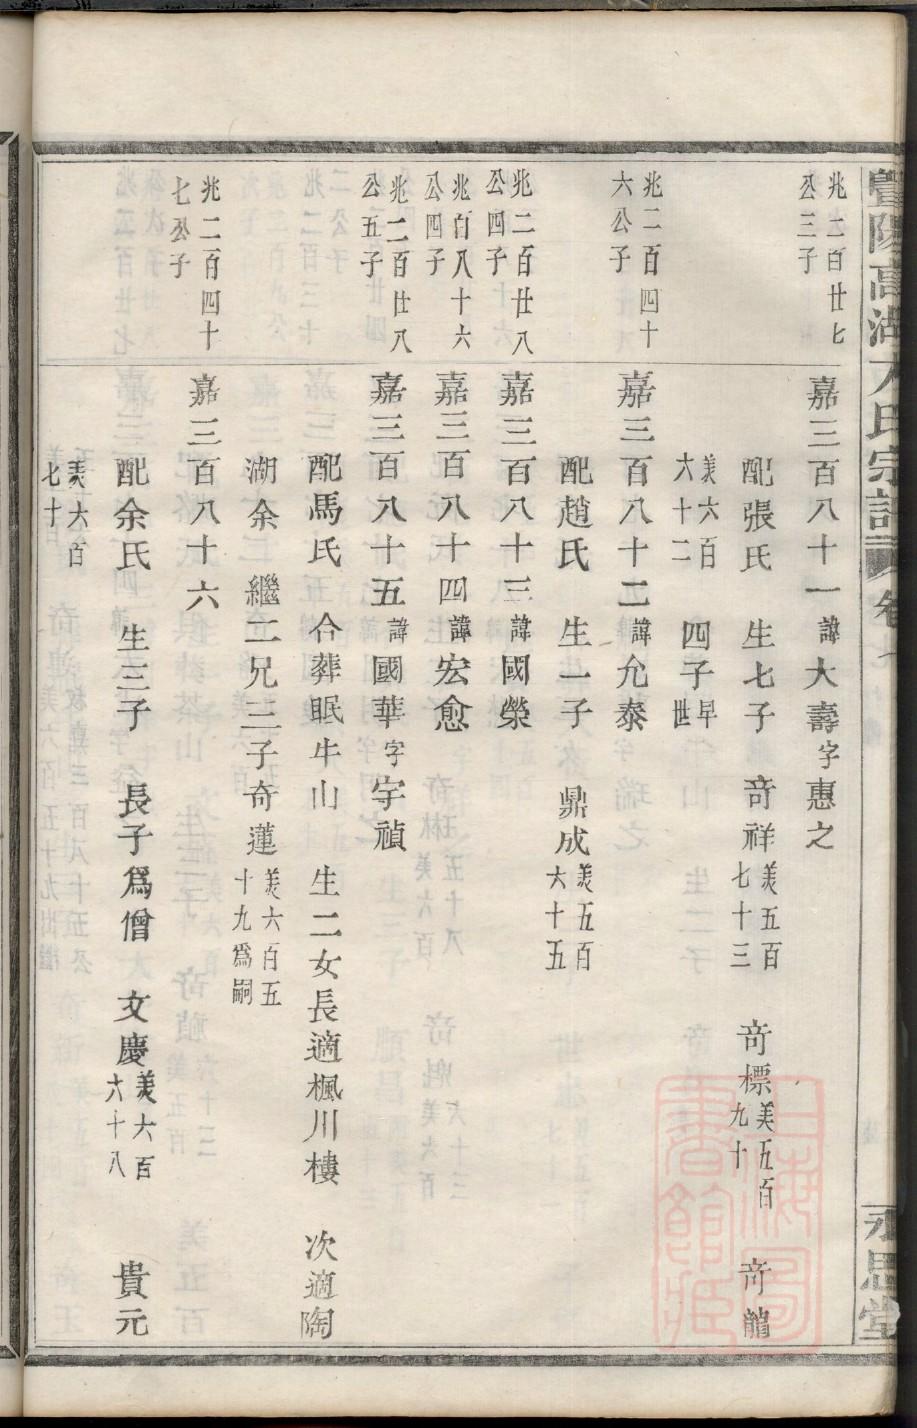 暨陽高湖 氏宗譜 卷七 永思堂
兆二百廿七
公三子
嘉三百八十一諱大壽字惠之
配張氏 生七子 奇祥美五百七十三 奇標美五百九十 奇龍
美六百六十二 四子早世
兆二百四十
六公子
嘉三百八十二諱允泰
配趙氏 生一子 鼎成美五百六十五
兆二百廿八
公四子
嘉三百八十三諱國榮
兆百八十六
公四子
嘉三百八十四諱宏愈
兆二百廿八
公五子
嘉三百八十五諱國華字宇禎
配馬氏 合葬眠牛山 生二女長適楓川樓 次適陶
湖余 繼二兄三子奇蓮美六百五十九爲嗣
兆二百四十
七公子
嘉三百八十六
配余氏 生三子 長子爲僧 文慶美六百六十八 貴元
美六百七十